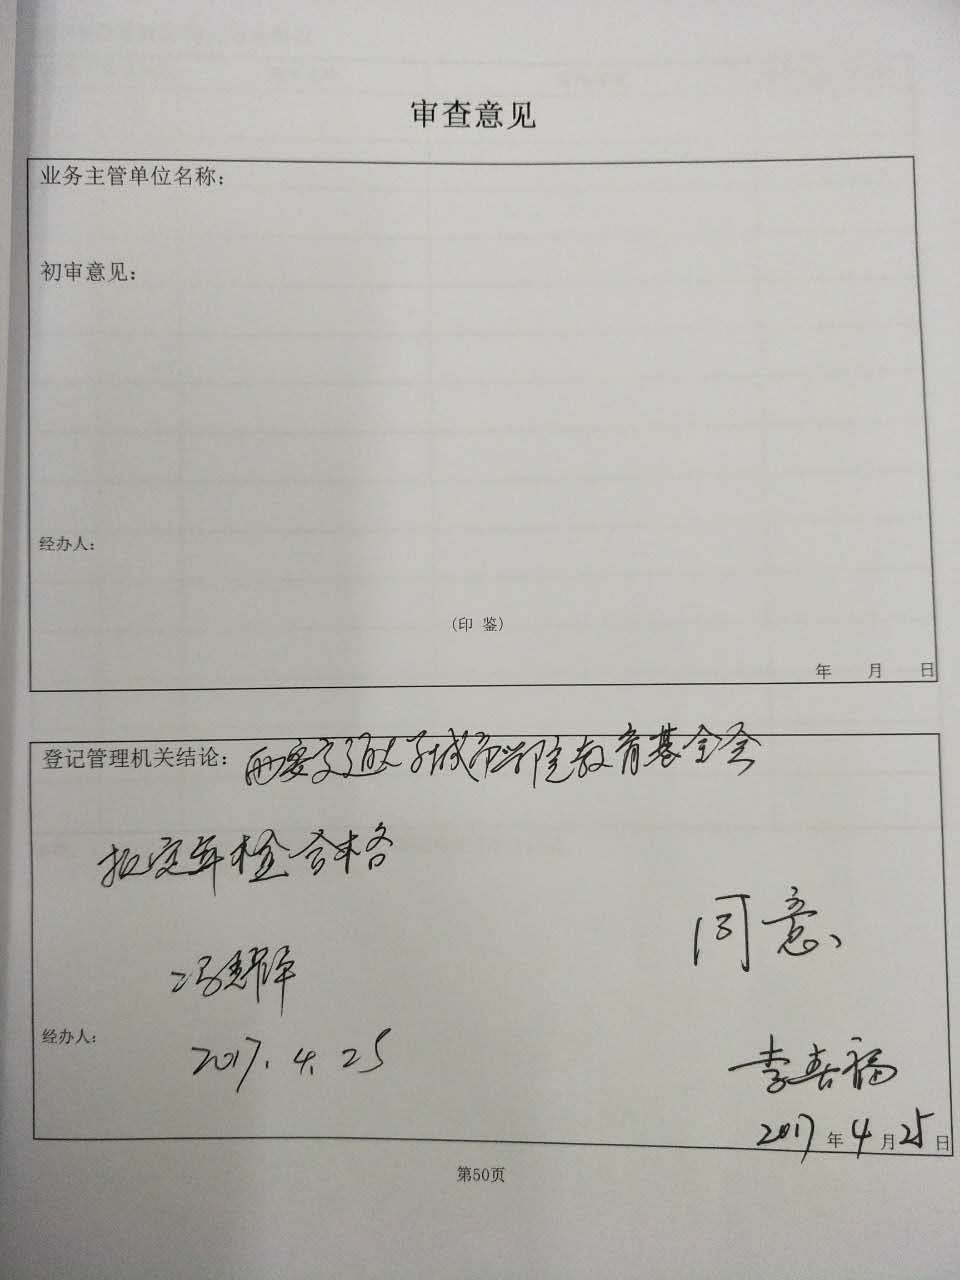 审查意见
业务主管单位名称：
初审意见：
经办人：
（印 鉴）
年 月 日
登记管理机关结论：西安交通大学城市学院教育基金会
拟定年检合格
同意
冯
经办人：
2017.4.25
李喜福
2017年4月25日
第50页